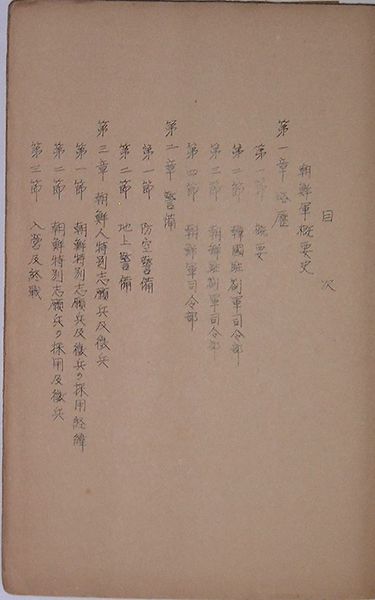 目次
朝鮮軍概要史
第一章 略歴
第一節 概要
第二節 韓國駐剳軍司令部
第三節 朝鮮駐剳軍司令部
第四節 朝鮮軍司令部
第二章 警備
第一節 防空警備
第二節 地上警備
第三章 朝鮮人特別志願兵及徴兵
第一節 朝鮮特別志願兵及徴兵ノ採用経緯
第二節 朝鮮特別志願兵ノ採用及徴兵
第三節 入營及終戰